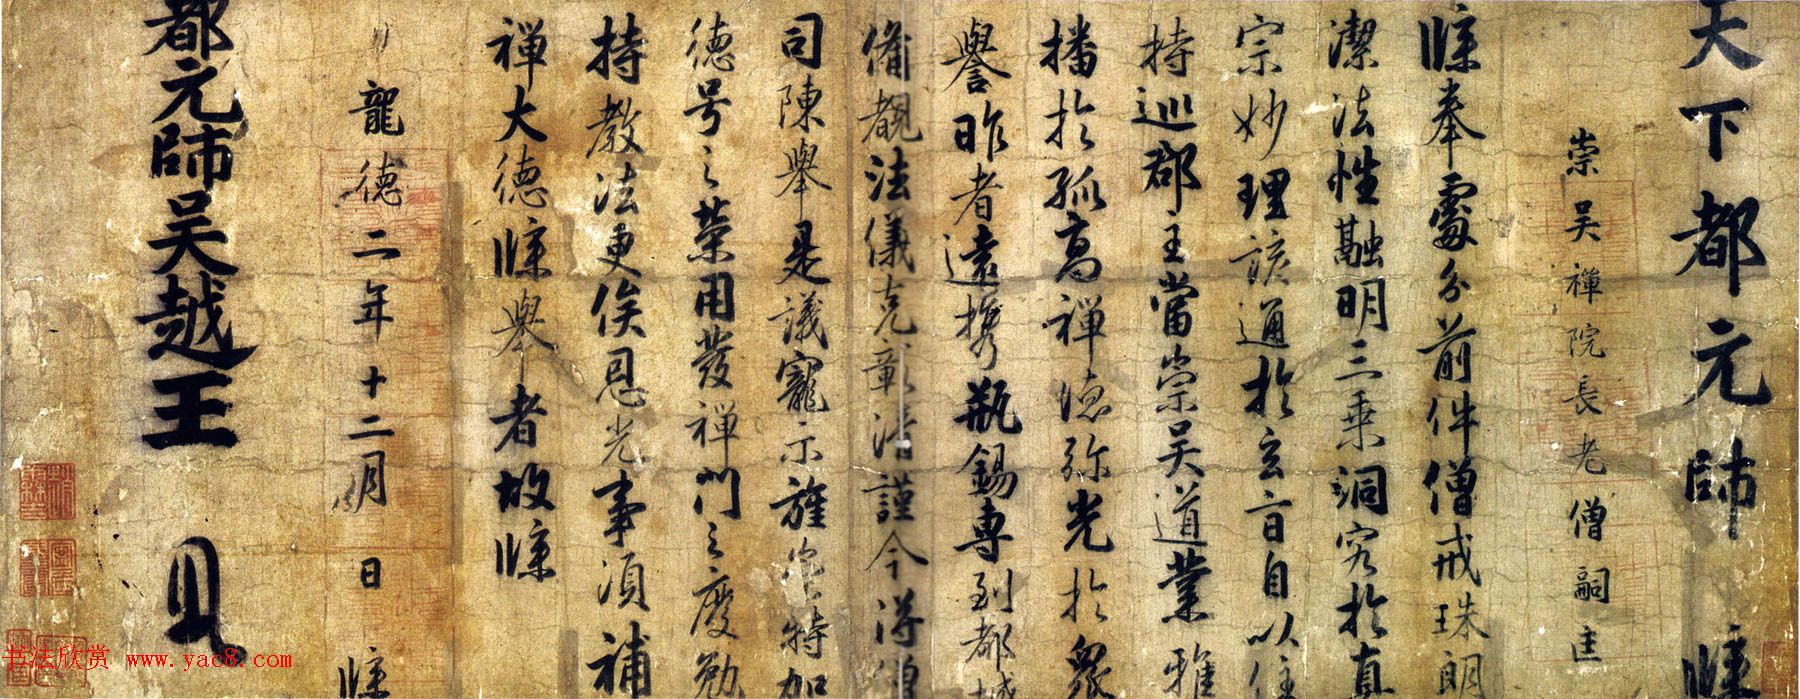 天下都元帥 牒
崇吴禪院長老僧嗣匡
牒奉處分前件僧戒珠朗
潔法性融明三乘洞究於真
宗妙理該通於玄旨自以住
持巡郡主當崇吴道業雅
播於孤高禅德弥光於衆
譽昨者遠携瓶錫專到都城
備觀法儀克彰清謹今得僧
司陳舉是議寵示旌崇特加
德号之榮用發禅門之慶勉
持教法更俟恩光事須補
禅大德牒舉者故牒
龍德二年十二月 日 牒
都元帥吴越王
书法欣赏 www.yac8.com